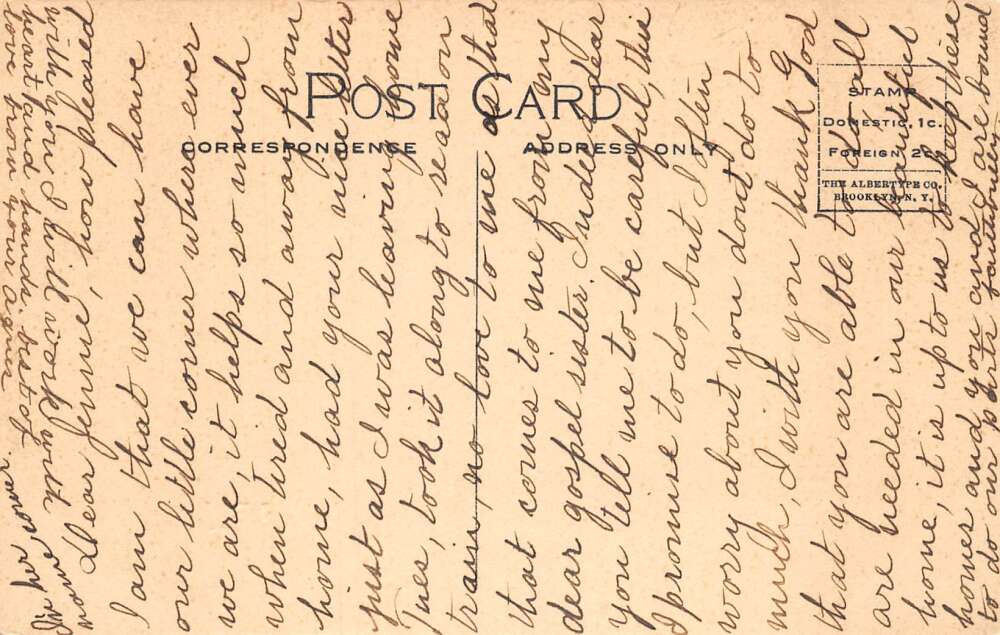 POST CARD
CORRESPONDENCE
ADDRESS ONLY
STAMP
DOMESTIC, 1C.
FOREIGN 2C.
THE ALBERTYPE CO.
BROOKLYN, N. Y.
Dear Jennie, how pleased
I am that we can have
our little corner where ever
we are, it helps so much
when tired and away from
home, had your nice letter
just as I was leaving home
Tues, took it along to read on
train, no love to me a that
that comes to me from my
dear gospel sister. Indeed dear
you tell me to be careful, this
I promise to do, but I often
worry about you dont do to
much, I with you thank God
that you are able to do all
are needed in our beautiful
home, it is up to us to keep these
homes and you and I are bound
to do our parts
with you I will work with
heart and hands. best of
love from your agnes